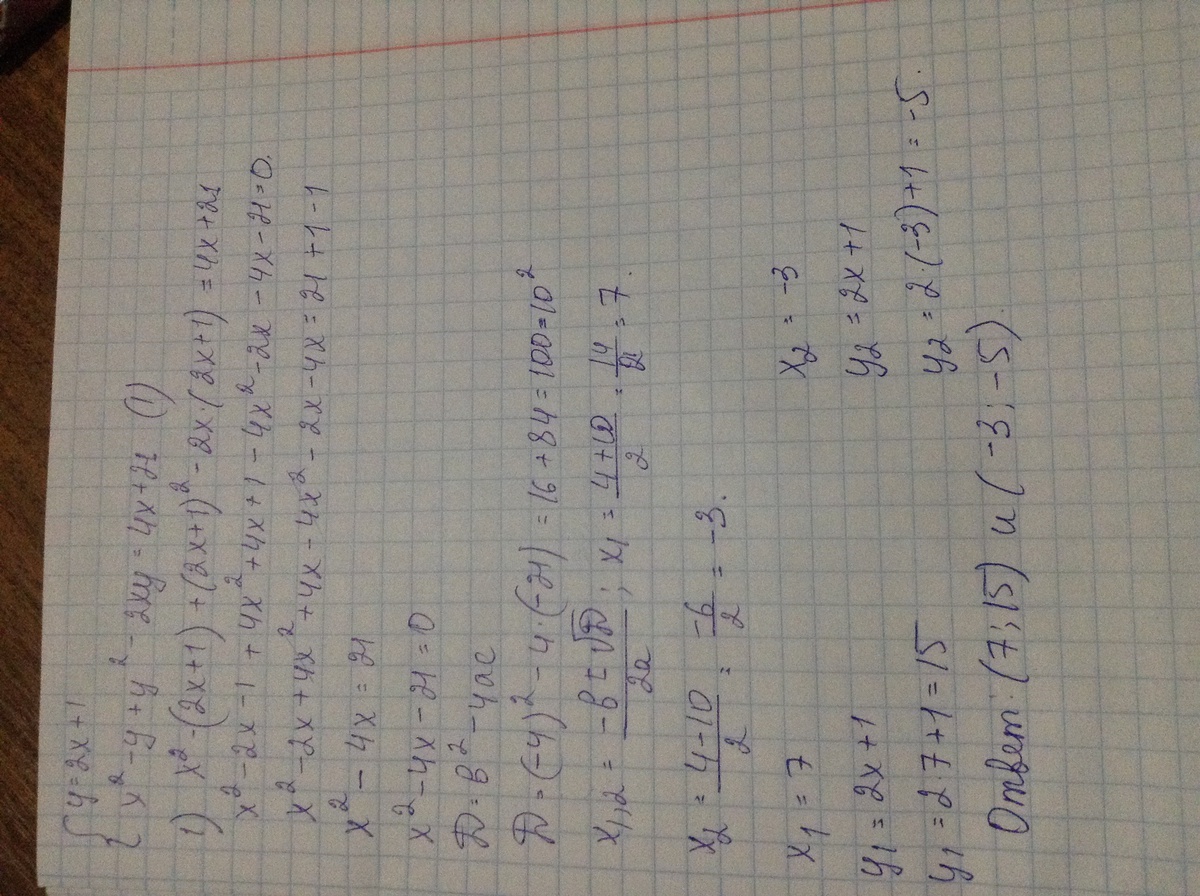 { y = 2x + 1
x² - y + y² - 2xy = 4x + 21 (1)
1) x² - (2x+1) + (2x+1)² - 2x·(2x+1) = 4x + 21
x² - 2x - 1 + 4x² + 4x + 1 - 4x² - 2x - 4x - 21 = 0.
x² - 2x + 4x² + 4x - 4x² - 2x - 4x = 21 + 1 - 1
x² - 4x = 21
x² - 4x - 21 = 0
D = в² - 4ac
D = (-4)² - 4·(-21) = 16 + 84 = 100 = 10²
x₁,₂ = (-в ± √D)/2a ; x₁ = (4+10)/2 = 14/2 = 7.
x₂ = (4-10)/2 = -6/2 = -3.
x₁ = 7 x₂ = -3
y₁ = 2x + 1 y₂ = 2x + 1
y₁ = 2·7 + 1 = 15 y₂ = 2·(-3) + 1 = -5.
Ответ: (7; 15) и (-3; -5).